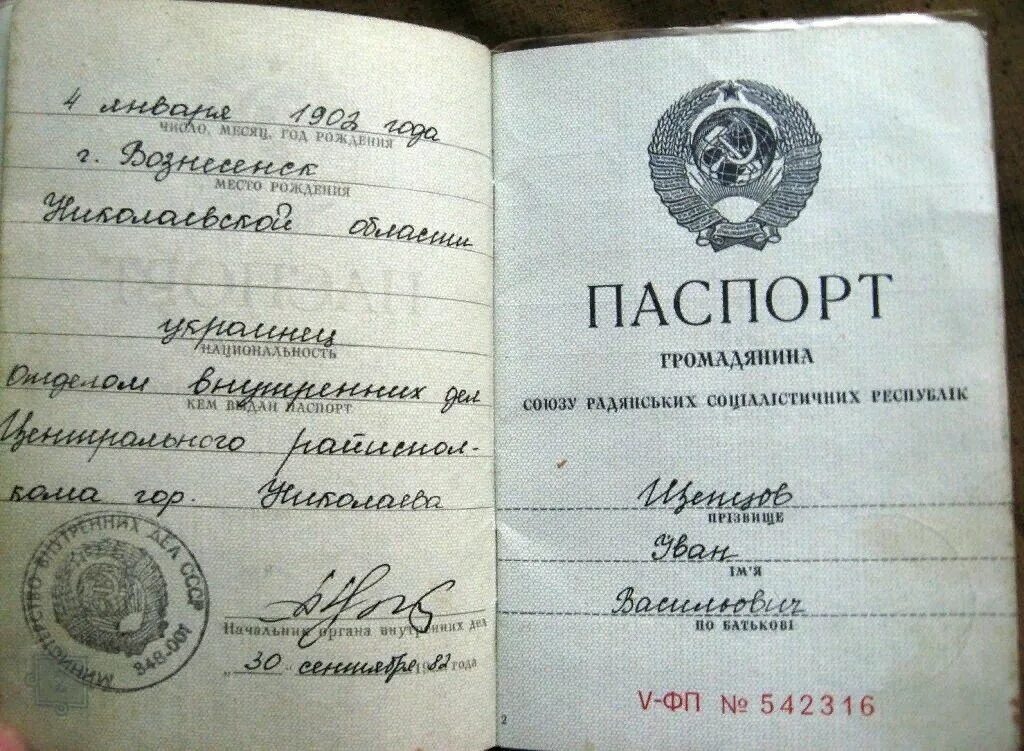 4 января 1902 года
ЧИСЛО, МЕСЯЦ, ГОД РОЖДЕНИЯ
г. Вознесенск
МЕСТО РОЖДЕНИЯ
Николаевской области
украинец
НАЦИОНАЛЬНОСТЬ
Отделом внутренних дел
КЕМ ВЫДАН ПАСПОРТ
Центрального райиспол-
кома гор. Николаева
МИНИСТЕРСТВО ВНУТРЕННИХ ДЕЛ СССР
848-001
Начальник органа внутренних дел
„30 сентября 1982 года
ПАСПОРТ
ГРОМАДЯНИНА
СОЮЗУ РАДЯНСЬКИХ СОЦІАЛІСТИЧНИХ РЕСПУБЛІК
ПРІЗВИЩЕ
Іван
ІМ'Я
Васильович
ПО БАТЬКОВІ
V-ФП № 542316
2